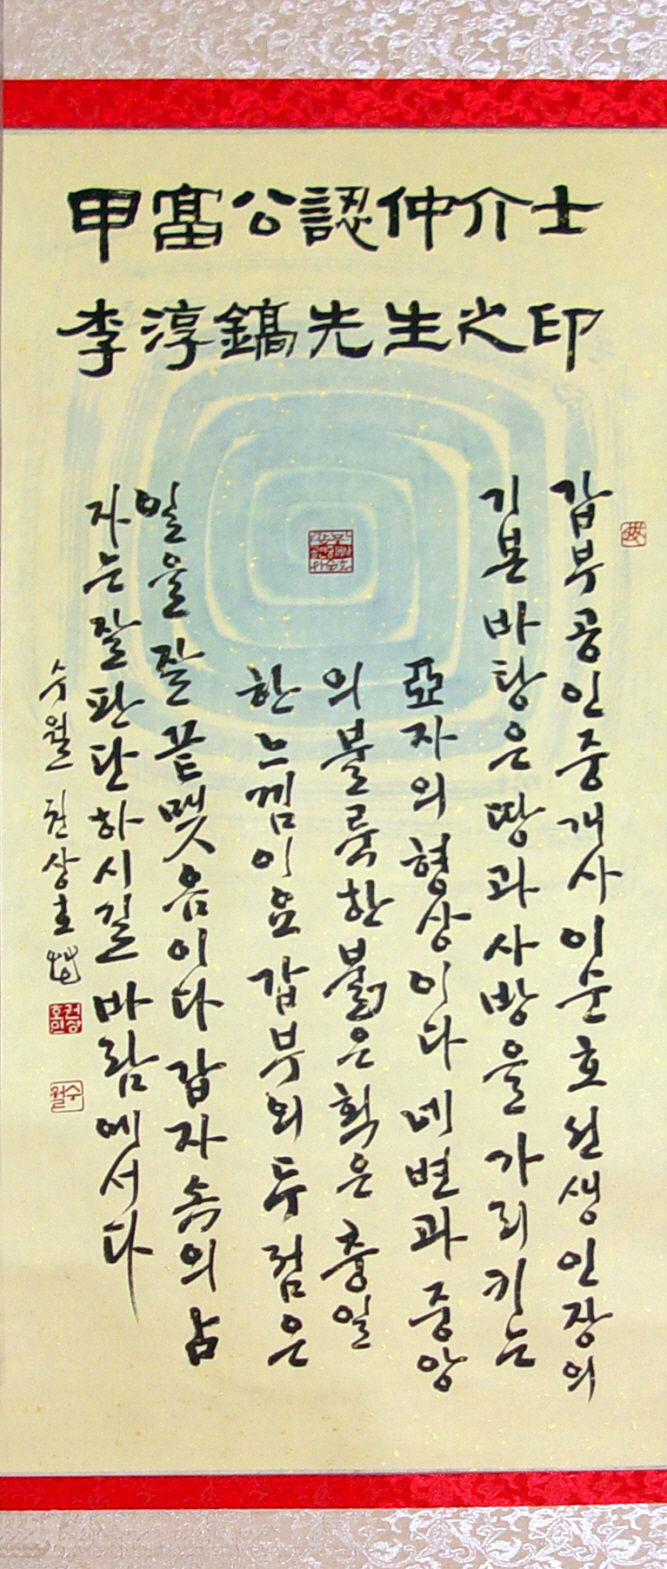 甲富公認仲介士
李淳鎬先生之印
갑부공인중개사이순호선생인장의
기본바탕은땅과사방을가리키는
亞자의형상이다네변과중앙
의불룩한붉은획은충일
한느낌이요갑부의두점은
일을잘끝맺음이다갑자속의占
자는잘판단하시길바람에서다
수월 권상호
권상호인
수월